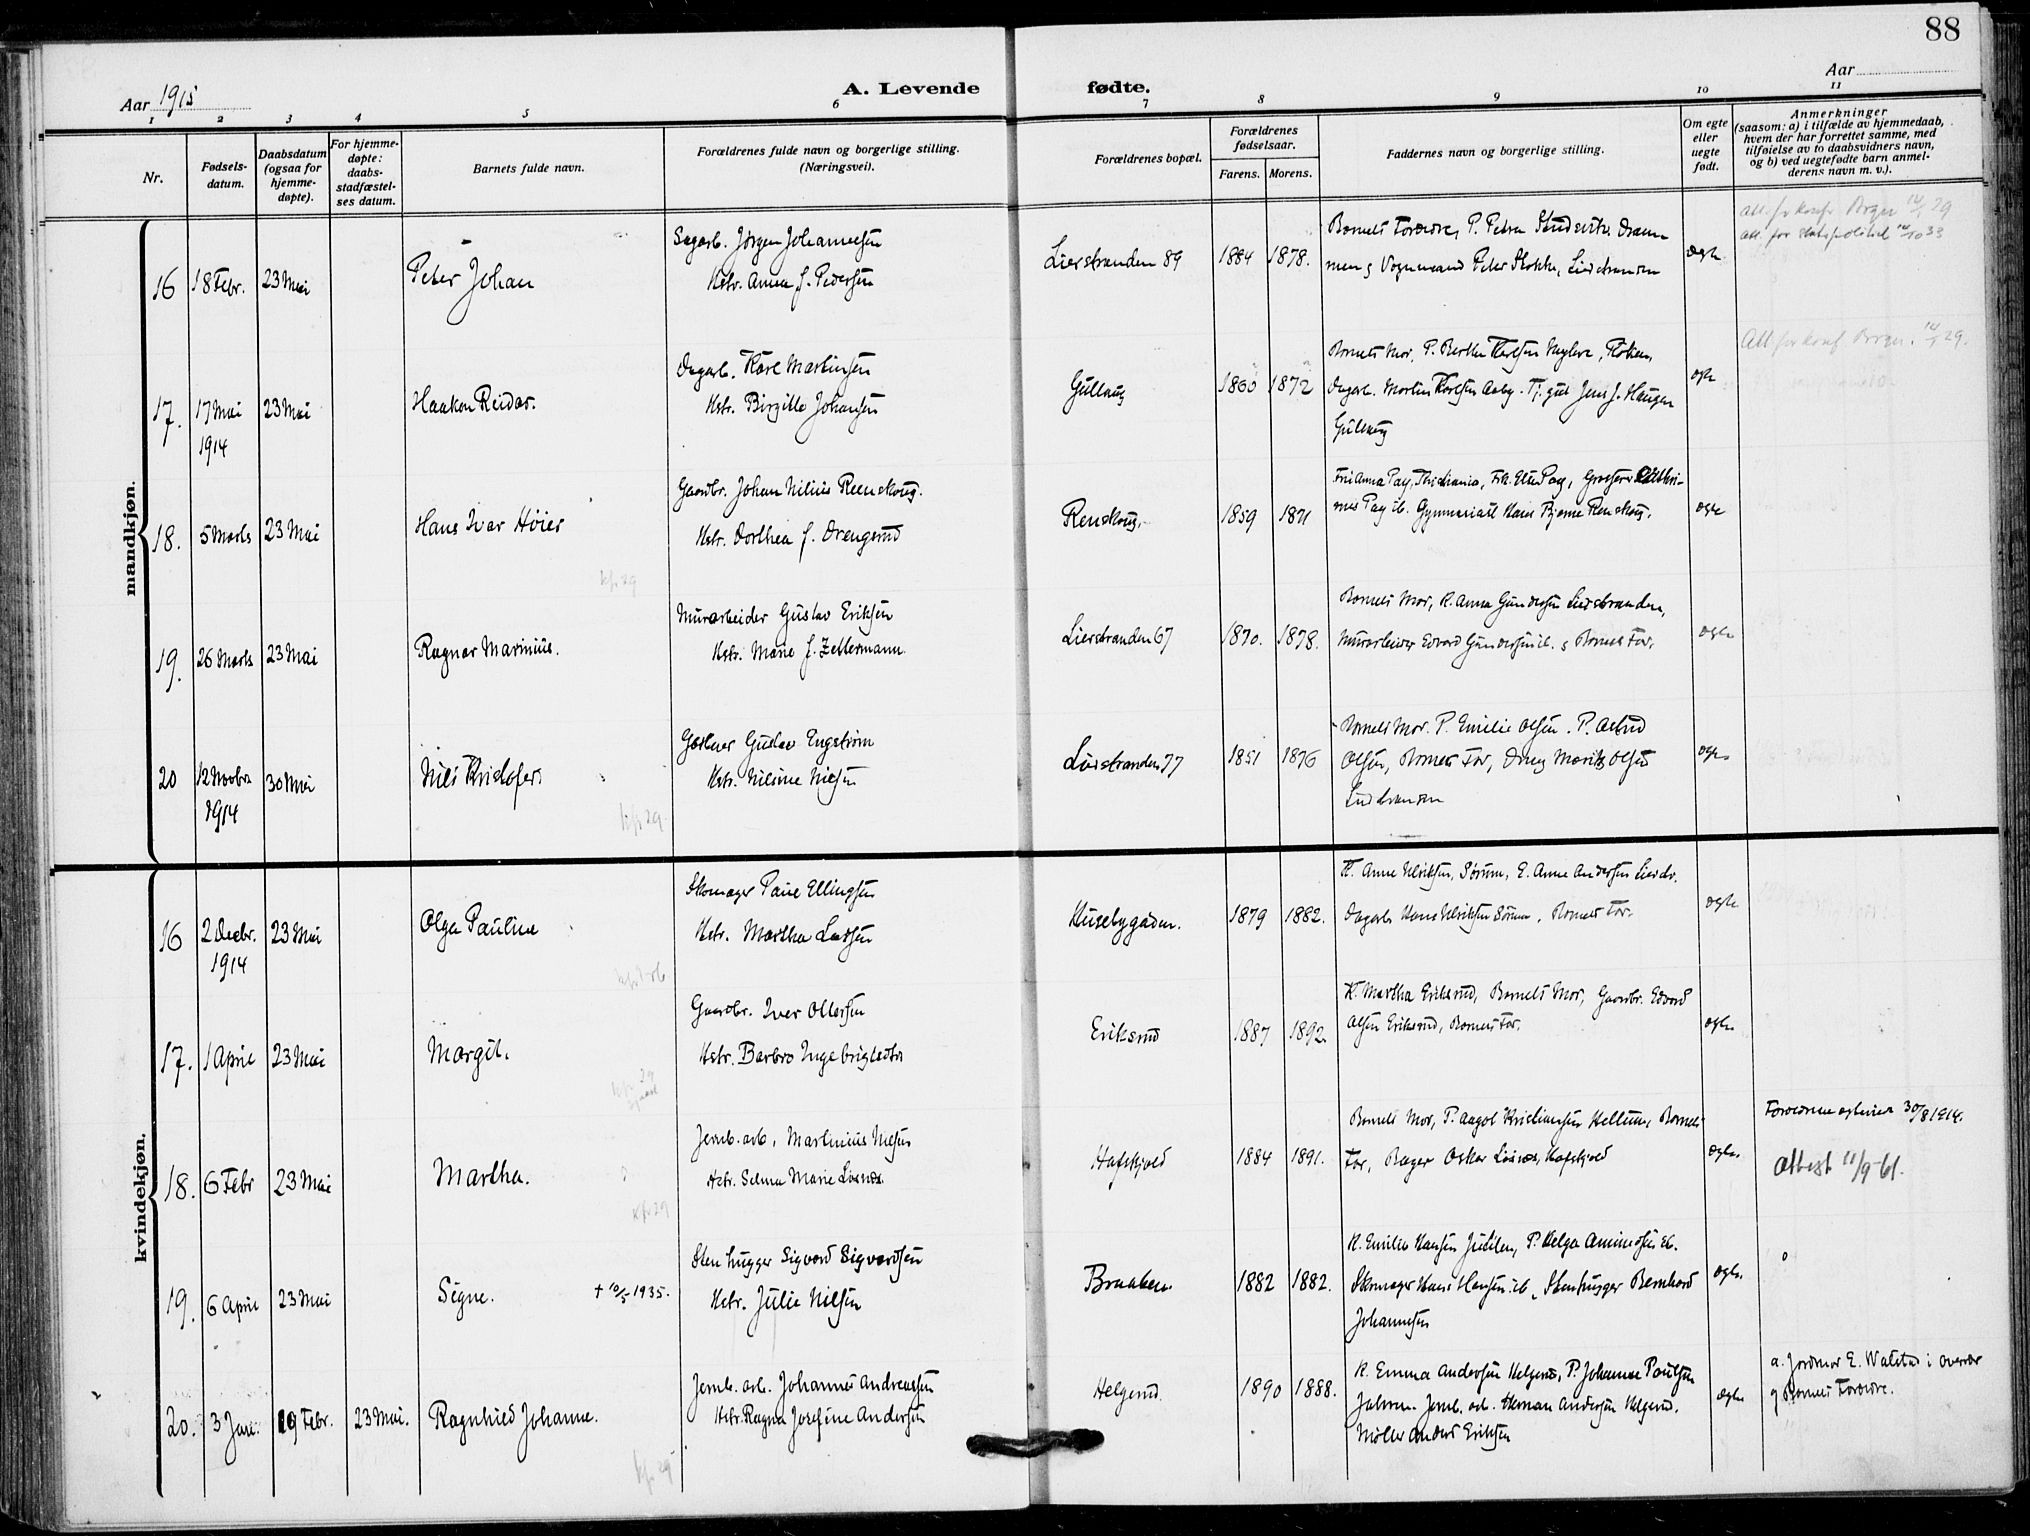 88
Aar 1915
A. Levende fødte.
Aar
1 2 3 4 5 6 7 8 9 10 11
Nr.
Fødsels-
datum.
Daabsdatum
(ogsaa for
hjemme-
døpte).
For hjemme-
døpte:
daabs-
stadfæstel-
ses datum.
Barnets fulde navn.
Forældrenes fulde navn og borgerlige stilling.
(Næringsvei).
Forældrenes bopæl.
Forældrenes
fødselsaar.
Farens. Morens.
Faddernes navn og borgerlige stilling.
Om egte
eller
uegte
født.
Anmerkninger
(saasom: a) i tilfælde av hjemmedaab,
hvem der har forrettet samme, med
tilføielse av to daabsvidners navn,
og b) ved uegtefødte barn anmel-
derens navn m. v.).
mandkjøn.
16 18 Febr. 23 Mai
Peter Johan
Sagarb. Jørgen Johannesen
Hstr. Anna f. Pedersen
Lierstranden 89 1884 1878.
Barnets Forældre, P. Petra
Vognmand Peter Stokke, Lierstranden
ægte
17. 17 Mai 23 Mai
1914
Haakon Reidar.
Dagarb. Kare Martinsen
Hstr. Birgitte Johansen
Gullaug 1860 1872
Barnets Mor, P. Berthe Karlsen
Dagarb. Martin Karlsen Aaby. Tj. gut Jens J. Haugen
Gullaug
ægte
18. 5 Marts 23 Mai
Hans Ivar Høier
Gaardbr. Johan Nilius Reenskoug.
Hstr. Dorthea f. Drengsrud
Renskoug. 1859 1871
Gymnasiast Hans Bjarne Renskoug.
ægte
kfr 29
19. 26 Marts 23 Mai
Ragnar Marinius.
Murarbeider Gustav Eriksen
Hstr. Marie f. Zettermann
Lierstranden 67 1870. 1878.
Barnets Mor, K. Anna Gundersen Lierstranden,
Murarbeider Edvard Gundersen ib. & Barnets Far.
ægte
20 12 Novbr 30 Mai
1914
Nils Kristofer.
Gartner Gustav Engstrøm
Hstr. Nilsine Nielsen
Lierstranden 77 1851 1876
Barnets Mor. P. Emilie Olsen. P. Astrid
Olsen, Barnets Far, Moritz Olsen
Lierstranden
ægte
kfr 29
kvindekjøn.
16 2 Decbr. 23 Mai
1914
Olga Pauline
Skomager Paul Ellingsen
Hstr. Martha Larsen
Husebygaden. 1879 1882.
K. Anne Ulriksen, Sørum, E. Anne Andersen Lierstr.
Dagarb Hans Ulriksen Sørum, Barnets Far.
ægte
17. 1 April 23 Mai
Margit.
Gaardbr. Iver Ottersen
Hstr. Barbro Ingebrigtsdtr
Eriksrud 1887 1892.
K. Martha Eriksrud, Barnets Mor, Gaardbr. Edvard
Olsen Eriksrud, Barnets Far.
ægte
kfr 29
18. 6 Febr 23 Mai
Martha.
Jernb. arb. Martinius Nielsen
Hstr. Selma Marie Losnæs.
Hafskjold 1884 1891.
Barnets Mor, P. Aagot Kristiansen Hellum, Barnets
Far, Bager Oskar Losnæs, Hafskjold
ægte.
Forældrene egteviet 30/8 1914.
Attest 11/9-61.
kfr 29
19. 6 April 23 Mai
Signe. † 10/5 1935.
Stenhugger Sigvard Sigvardsen
Hstr. Julie Nilsen
Braaken 1882 1882.
K. Emilie Hansen Julilen, P. Helga Amundsen ib.
Skomager Hans Hansen ib, Stenhugger Bernhard
Johannesen
ægte.
20. 3 Jan. 19 Febr. 23 Mai.
Ragnhild Johanne.
Jernb. arb. Johannes Andreassen
Hstr. Ragna Josefine Andersen
Helgerud. 1890 1888.
K. Emma Andersen Helgerud, P. Johanne Paulsen
Jernb. arb. Herman Andersen Helgerud.
Møller Anders Eriksen
ægte
a. Jordmor E. Walstad i overvær
af Barnets Forældre.
kfr 29